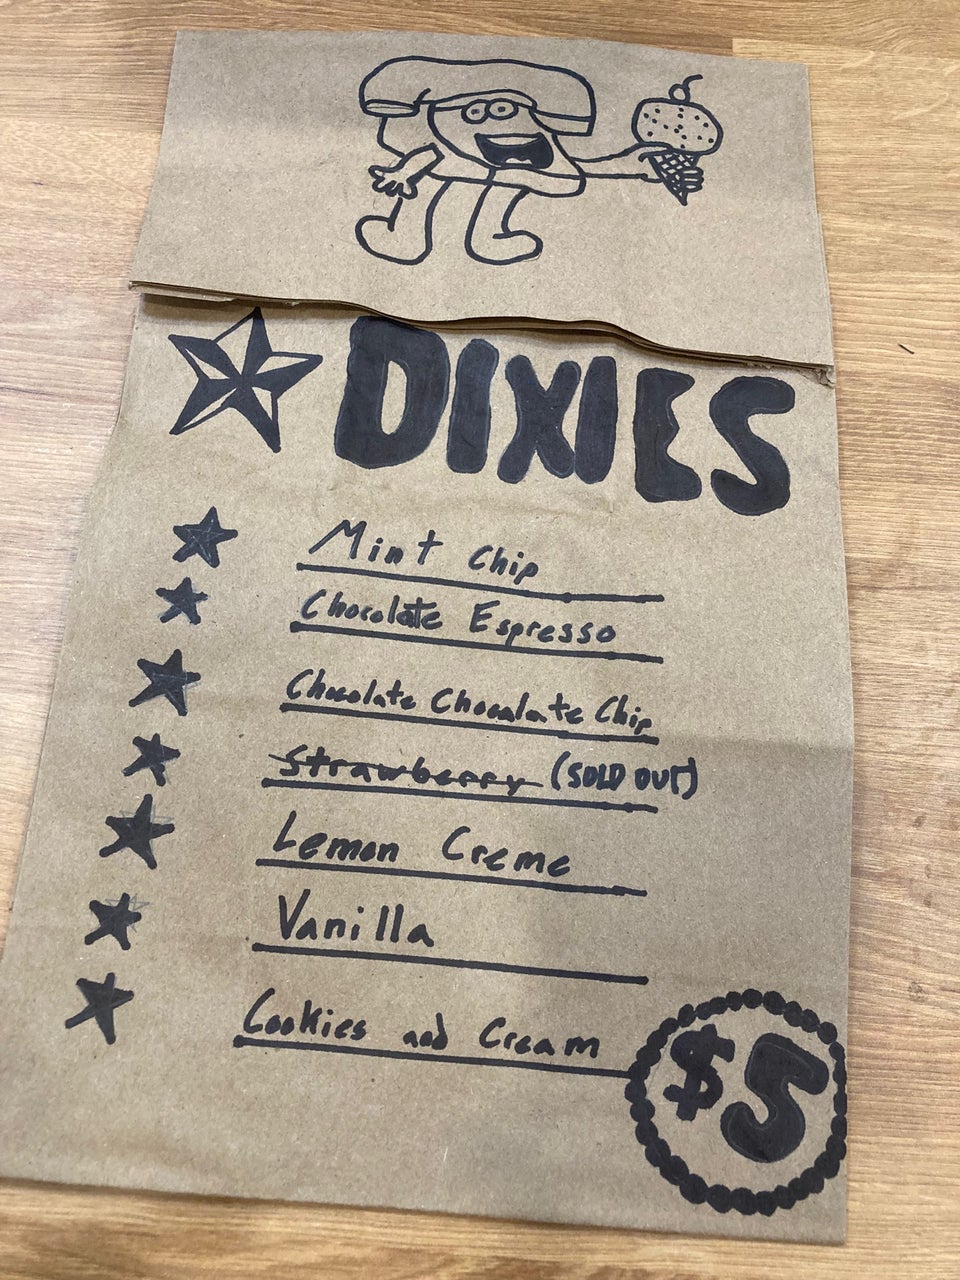 DIXIES
Mint Chip
Chocolate Espresso
Chocolate Chocolate Chip
Strawberry (SOLD OUT)
Lemon Creme
Vanilla
Cookies and Cream
$5